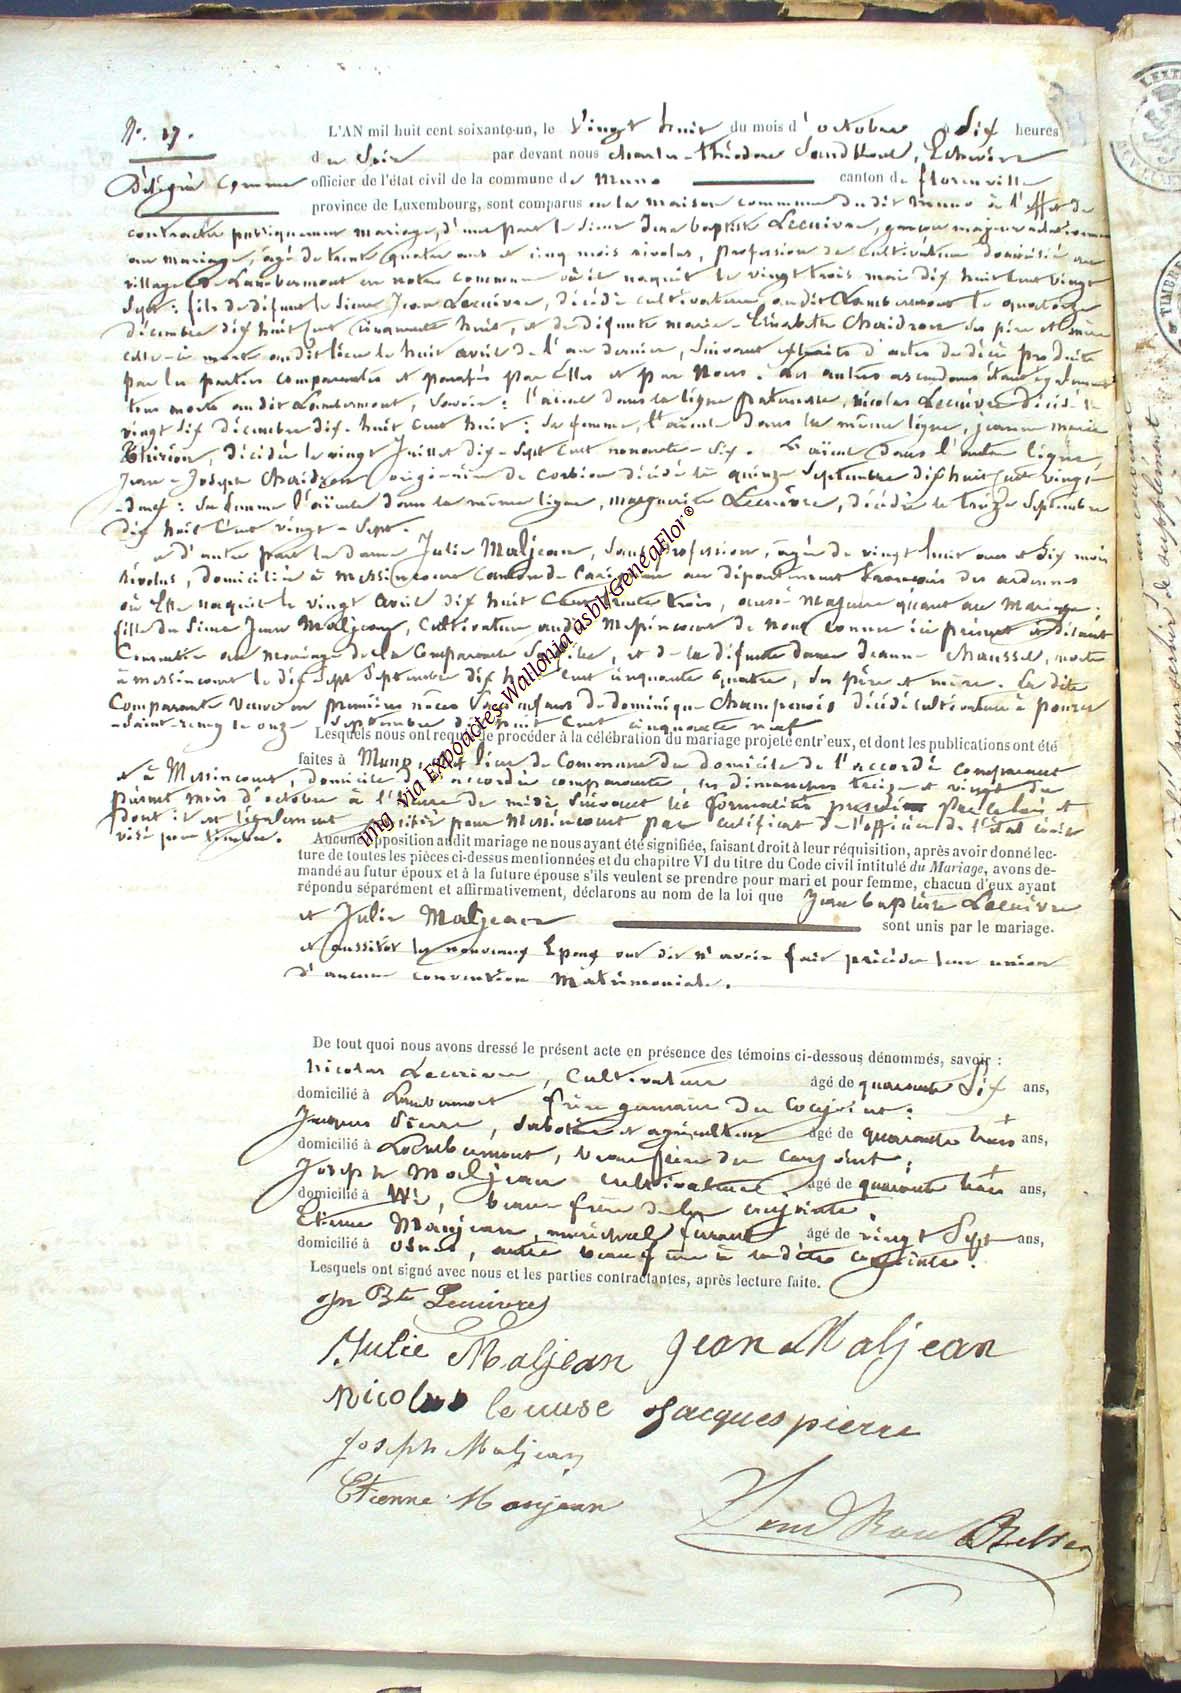 N°. 27.
L'AN mil huit cent soixante-un, le Vingt huit du mois d'octobre à six heures
du Soir par devant nous Charles-Théodore Echevin
Délégué comme officier de l'état civil de la commune de Muno canton de florenville
province de Luxembourg, sont comparus en la maison commune dudit Muno à l'effet de
contracter mariage, d'une part le Sieur Jean baptiste Lecuivre, garçon majeur
au mariage, âgé de trente quatre ans et cinq mois révolus, profession de cultivateur domicilié au
village de Lambermont en notre commune où il naquit le vingt trois mai dix huit cent vingt
Sept : fils de défunt le Sieur Jean Lecuivre, décédé cultivateur audit Lambermont le quatorze
décembre dix huit cent cinquante huit, et de défunte marie-Elisabeth Chaidron ses père et mère
celle-ci morte audit lieu le huit avril de l'an dernier, suivant extraits d'actes de décès produits
par les parties comparantes et parafés par Elles et par Nous. Les autres ascendans étant également
tous morts audit Lambermont, Savoir : l'aïeul dans la ligne paternelle, nicolas Lecuivre décédé le
vingt six décembre dix-huit cent huit : sa femme, l'aïeule dans la même ligne, jeanne marie
Thirion, décédée le vingt Juillet dix-Sept cent nonante-six. L'aïeul dans l'autre ligne,
Jean-Joseph Chaidron originaire de Corbion décédé le quinze Septembre dix huit cent vingt-
-neuf : Sa femme l'aïeule dans la même ligne, marguerite Lecuivre, décédée le treize Septembre
dix huit Cent vingt-Sept.
et d'autre part la dame Julie Maljean, Sans profession, âgée de vingt huit ans et six mois
révolus, domiciliée à Messincourt canton de Carignan au département français des ardennes
où Elle naquit le vingt avril dix huit Cent trente trois, aussi Majeure quant au Mariage :
fille du Sieur Jean Maljean, Cultivateur audit Messincourt de Nous connu ici présent et disant
Consentir au mariage de la Comparante Sa fille, et de la défunte dame Jeanne Chausset, morte
à messincourt le dix Sept Septembre dix huit cent cinquante quatre, Ses père et mère. La dite
Comparante Veuve en premières nôces Sans enfans de dominique Champenois décédé cultivateur à pourru
-Saint-remy le onze Septembre dix huit Cent cinquante neuf
Lesquels nous ont requis de procéder à la célébration du mariage projeté entr'eux, et dont les publications ont été
faites à Muno, chef lieu de Commune du domicile de l'accordé comparant
et à Messincourt, domicile de l'accordée comparante, les dimanches treize et vingt du
présent mois d'octobre à l'heure de midi Suivant les formalités par la loi et
dont il est légalement pour Messincourt par certificat de l'officier de l'état civil
visé pour timbre.
Aucune opposition audit mariage ne nous ayant été signifiée, faisant droit à leur réquisition, après avoir donné lec-
ture de toutes les pièces ci-dessus mentionnées et du chapitre VI du titre du Code civil intitulé du Mariage, avons de-
mandé au futur époux et à la future épouse s'ils veulent se prendre pour mari et pour femme, chacun d'eux ayant
répondu séparément et affirmativement, déclarons au nom de la loi que Jean baptiste Lecuivre
et Julie Maljean sont unis par le mariage.
et aussitôt les nouveaux Epoux ont dit n'avoir fait précéder leur union
d'aucune convention Matrimoniale.
De tout quoi nous avons dressé le présent acte en présence des témoins ci-dessous dénommés, savoir :
Nicolas Lecuivre, Cultivateur âgé de quarante Six ans,
domicilié à Lambermont frère germain du conjoint :
Jacques Pierre, Sabotier et agriculteur âgé de quarante trois ans,
domicilié à Lambermont, beau frère du conjoint ;
Joseph Maljean cultivateur. âgé de quarante trois ans,
domicilié à beau frère de la conjointe.
Etienne Manjean, maréchal ferrant âgé de vingt Sept ans,
domicilié à Osnes, autre beau frère à la dite conjointe.
Lesquels ont signé avec nous et les parties contractantes, après lecture faite.
Jn Bte Lecuivre
Julie Maljean Jean Maljean
Nicolas lecuive Jacques pierre
Joseph Maljean
Etienne Manjean
img via Expoactes-Wallonia asbl/GeneaFlor®